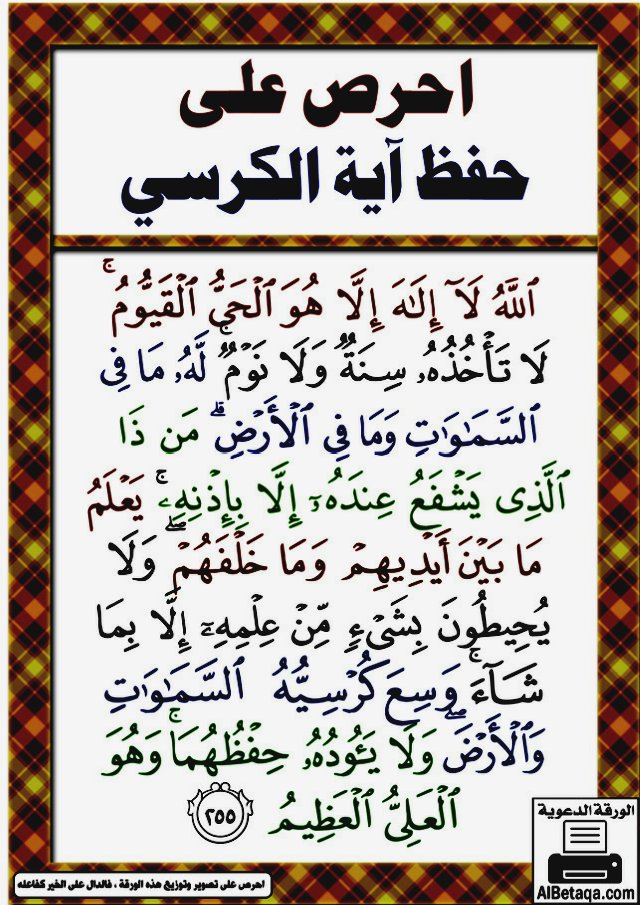 احرص على
حفظ آية الكرسي
ٱللَّهُ لَآ إِلَٰهَ إِلَّا هُوَ ٱلْحَىُّ ٱلْقَيُّومُ ۚ
لَا تَأْخُذُهُۥ سِنَةٌ وَلَا نَوْمٌ ۚ لَّهُۥ مَا فِى
ٱلسَّمَٰوَٰتِ وَمَا فِى ٱلْأَرْضِ ۗ مَن ذَا
ٱلَّذِى يَشْفَعُ عِندَهُۥٓ إِلَّا بِإِذْنِهِۦ ۚ يَعْلَمُ
مَا بَيْنَ أَيْدِيهِمْ وَمَا خَلْفَهُمْ ۖ وَلَا
يُحِيطُونَ بِشَىْءٍ مِّنْ عِلْمِهِۦٓ إِلَّا بِمَا
شَآءَ ۚ وَسِعَ كُرْسِيُّهُ ٱلسَّمَٰوَٰتِ
وَٱلْأَرْضَ ۖ وَلَا يَـُٔودُهُۥ حِفْظُهُمَا ۚ وَهُوَ
ٱلْعَلِىُّ ٱلْعَظِيمُ ٢٥٥
الورقة الدعوية
AlBetaqa.com
احرص على تصوير وتوزيع هذه الورقة ، فالدال على الخير كفاعله